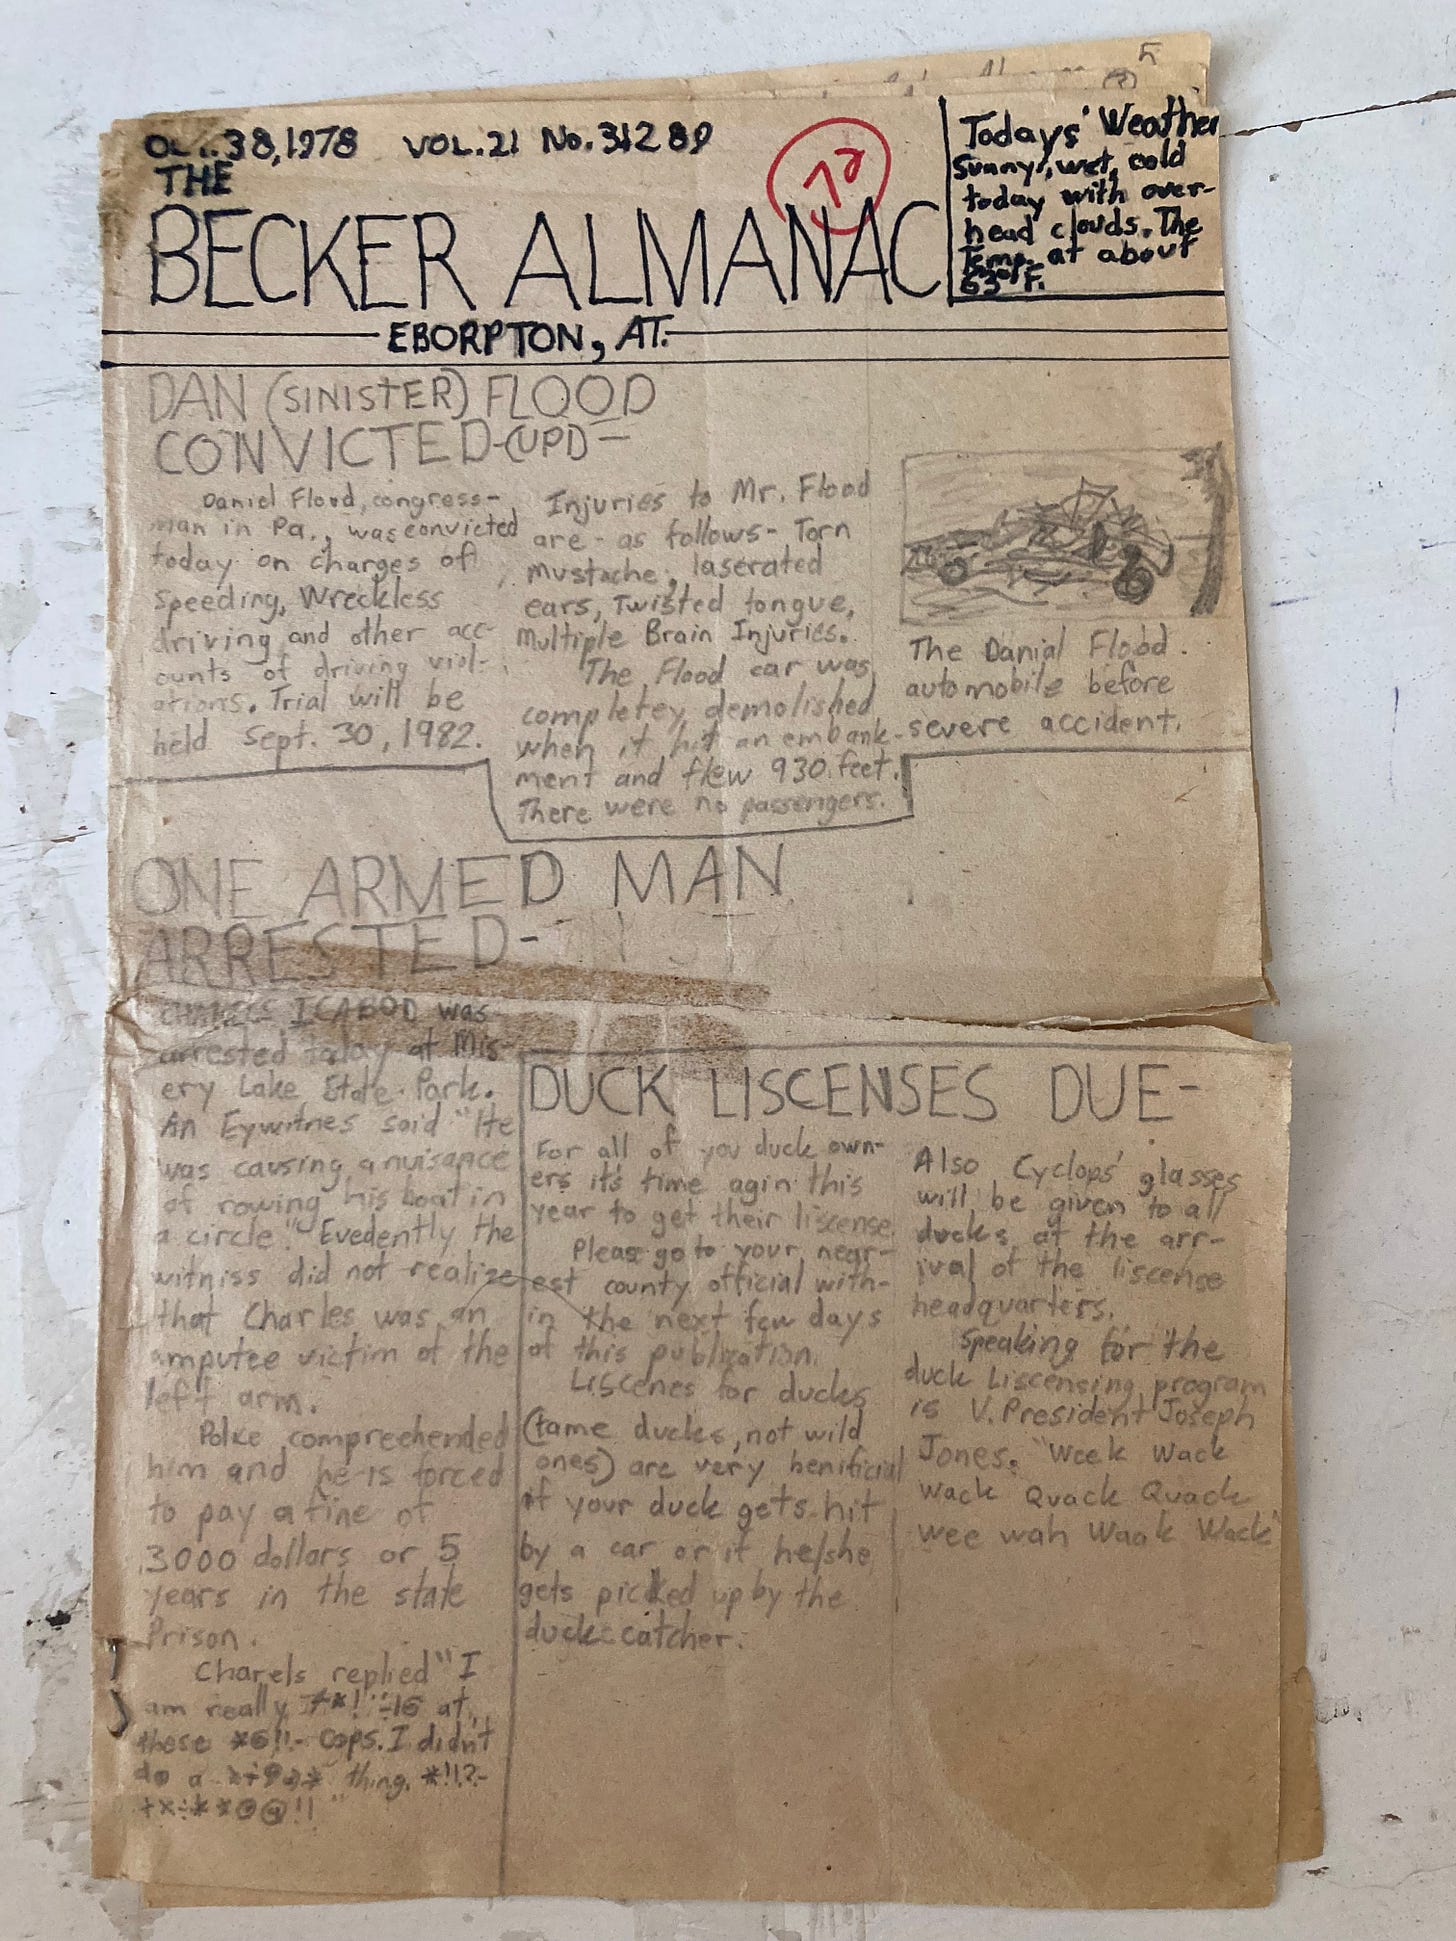 38, 1978 VOL. 21 No. 31289
THE
BECKER ALMANAC
72
Todays' Weather
Sunny, wet, cold
today with over-
head clouds. The
Temp. at about
63° F.
EBORPTON, AT.
DAN (SINISTER) FLOOD
CONVICTED-(UPD-
Daniel Flood, congress-
man in Pa., was convicted
today on charges of
speeding, Wreckless
driving and other acc-
ounts of driving viol-
ations. Trial will be
held Sept. 30, 1982.
Injuries to Mr. Flood
are - as follows - Torn
Mustache, laserated
ears, Twisted tongue,
Multiple Brain Injuries.
The Flood car was
completey demolished
when it hit an embank-
ment and flew 930 feet.
There were no passengers.
The Danial Flood
automobile before
severe accident.
ONE ARMED MAN
ARRESTED-
CHARLES ICABOD was
arrested today at Mis-
ery Lake State Park.
An Eywitnes said "He
was causing a nuisance
of rowing his boat in
a circle." Evedently the
witniss did not realize
that Charles was an
amputee victim of the
left arm.
Police compreehended
him and he is forced
to pay a fine of
3000 dollars or 5
years in the state
Prison.
Charels replied "I
am really at
these cops. I didn't
do a thing.
DUCK LISCENSES DUE-
For all of you duck own-
ers it's time agin this
year to get their liscense
Please go to your near-
est county official with-
in the next few days
of this publization.
Liscenes for ducks
(tame ducks, not wild
ones) are very benificial
if your duck gets hit
by a car or if he/she
gets picked up by the
duck catcher.
Also Cyclops' glasses
will be given to all
ducks at the arr-
ival of the liscense
headquarters.
Speaking for the
duck Liscensing program
is V. President Joseph
Jones. "Week Wack
Wack Quack Quack
wee wah Waak Wack"